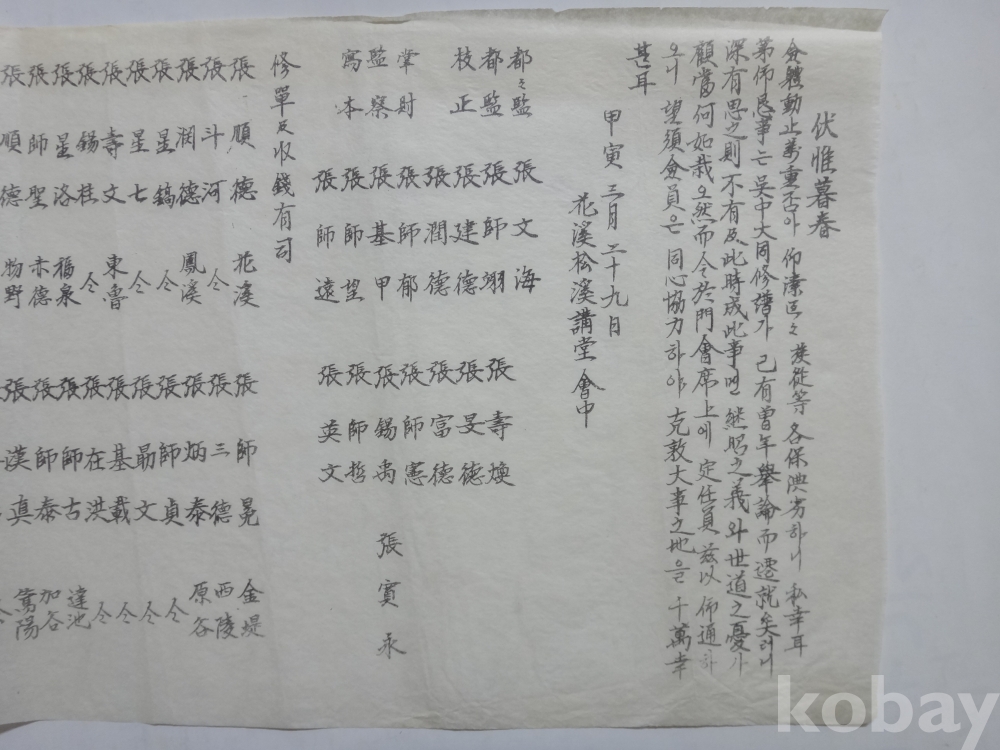 伏惟暮春
僉體動止萬重否아 仰溸區々 族從等 各保湙劣하니 私幸耳
第仰恳事는 吳中大同修譜가 已有曾年擧論而遷就矣러니
深有思之則不有及此時成此事면 継昭之義와 世道之憂가
顧當何如哉오 然而今於門會席上에 定任員 玆以仰通하
오니 望須僉員은 同心協力하야 克敦大事之地을 千萬幸
甚耳
甲寅 三月 二十九日
花溪松溪講堂 會中
都々監 張文海 張壽煥
都監 張師翊 張旻德
校正 張建德 張富德
張潤德 張師憲
掌財 張師郁 張錫禹 張寅永
監察 張基甲 張師哲
寫本 張師望 張英文
張師遠
修單及收錢有司
張順德 花溪 張師冕 金堤
張斗河 仝 張三德 西陵
張潤德 鳳溪 張炳泰 原谷
張星鎬 仝 張師貞 仝
張星七 仝 張勗文 仝
張壽文 東魯 張基載 仝
張錫桂 仝 張在洪 仝
張星洛 福泉 張師古 達池
張師聖 赤德 張師泰 加谷
張順德 物野 張漢眞 篤陽
仝